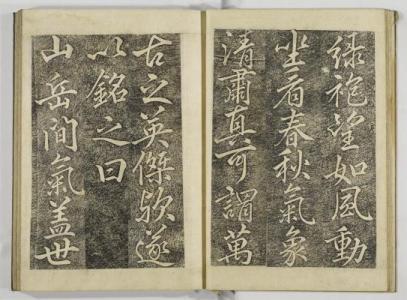 綠袍望如風動
坐看春秋氣象
清肅真可謂萬
古之英傑歟遂
以銘之曰
山岳間氣蓋世